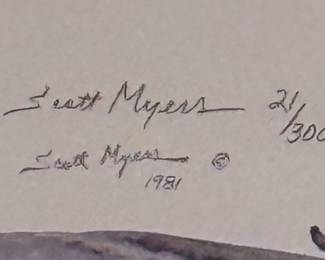 Scott Myers 21/300
Scott Myers ©
1981